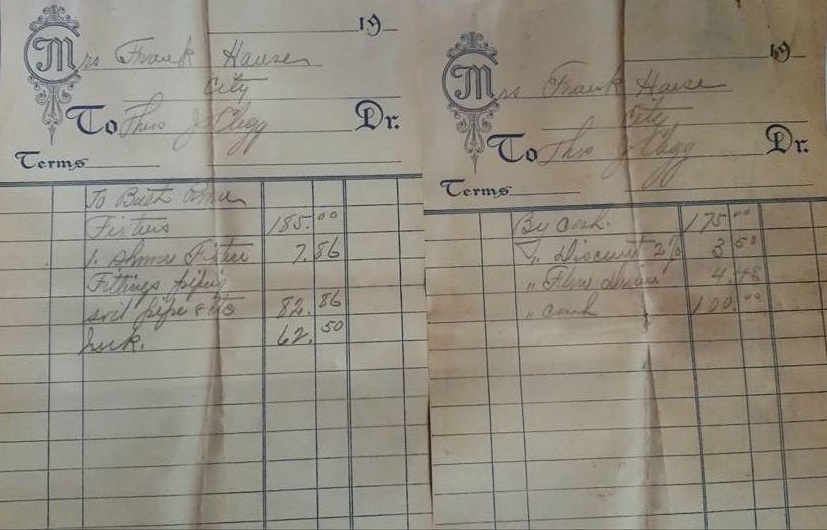 19
Mrs Frank Hauser
City
To Thos J Clegg Dr.
Terms
To Bath
Fixtures 185.00
1 Shower Fixture 7.86
Fittings piping
soil pipe & etc 82.86
62.50
19
Mrs Frank Hauser
City
To Thos J Clegg Dr.
Terms
By cash. 175.00
" Discount 2% 3
" 4.48
" cash 100.00